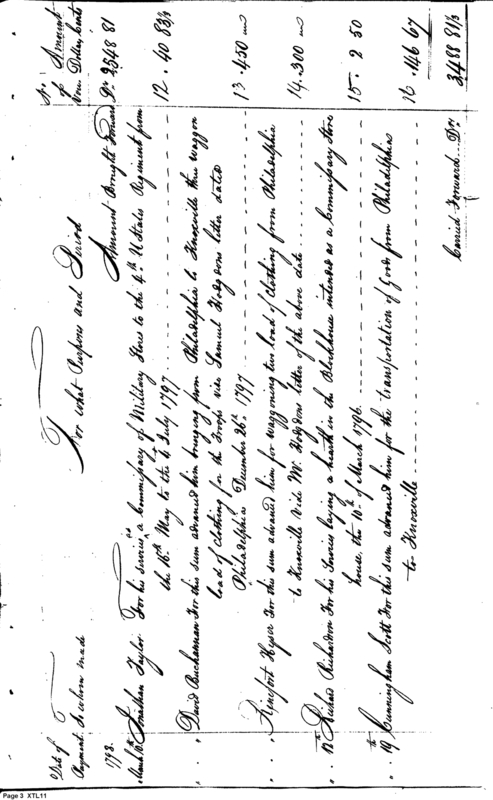 Date of Payment To whom made For what Purpose and Period No. of Vour. Amount Dollars Cents
1798. Amount Brought Forward Drs. 2548 81
March Jonathan Taylor For his services as Commissary of Military Stores to the 4th. U States Regiment from
the 16th. May to the 6 July 1797 12. 40 83⅓
" " David Buchannan For this sum advanced him bringing from Philadelphia to Knoxville three waggon
load of clothing for the Troops vide Samuel Hodgdons letter dated
Philadelphia December 26th. 1797 13. 450
" " Hyser For this sum advanced him for waggoning two load of Clothing from Philadelphia
to Knoxville Vide Mr. Hodgdons letter of the above date 14. 300
" Richard Richardson For his Services laying a hearth in the Blockhouse intended as a Commissary Store
house the 10th. of March 1796. 15. 2 50
" 19th Cunningham Scott For this sum advanced him for the transportation of Goods from Philadelphia
to Knoxville 16. 146 67
Carried Forward Drs. 3488 81⅓
Page 3 XTL11